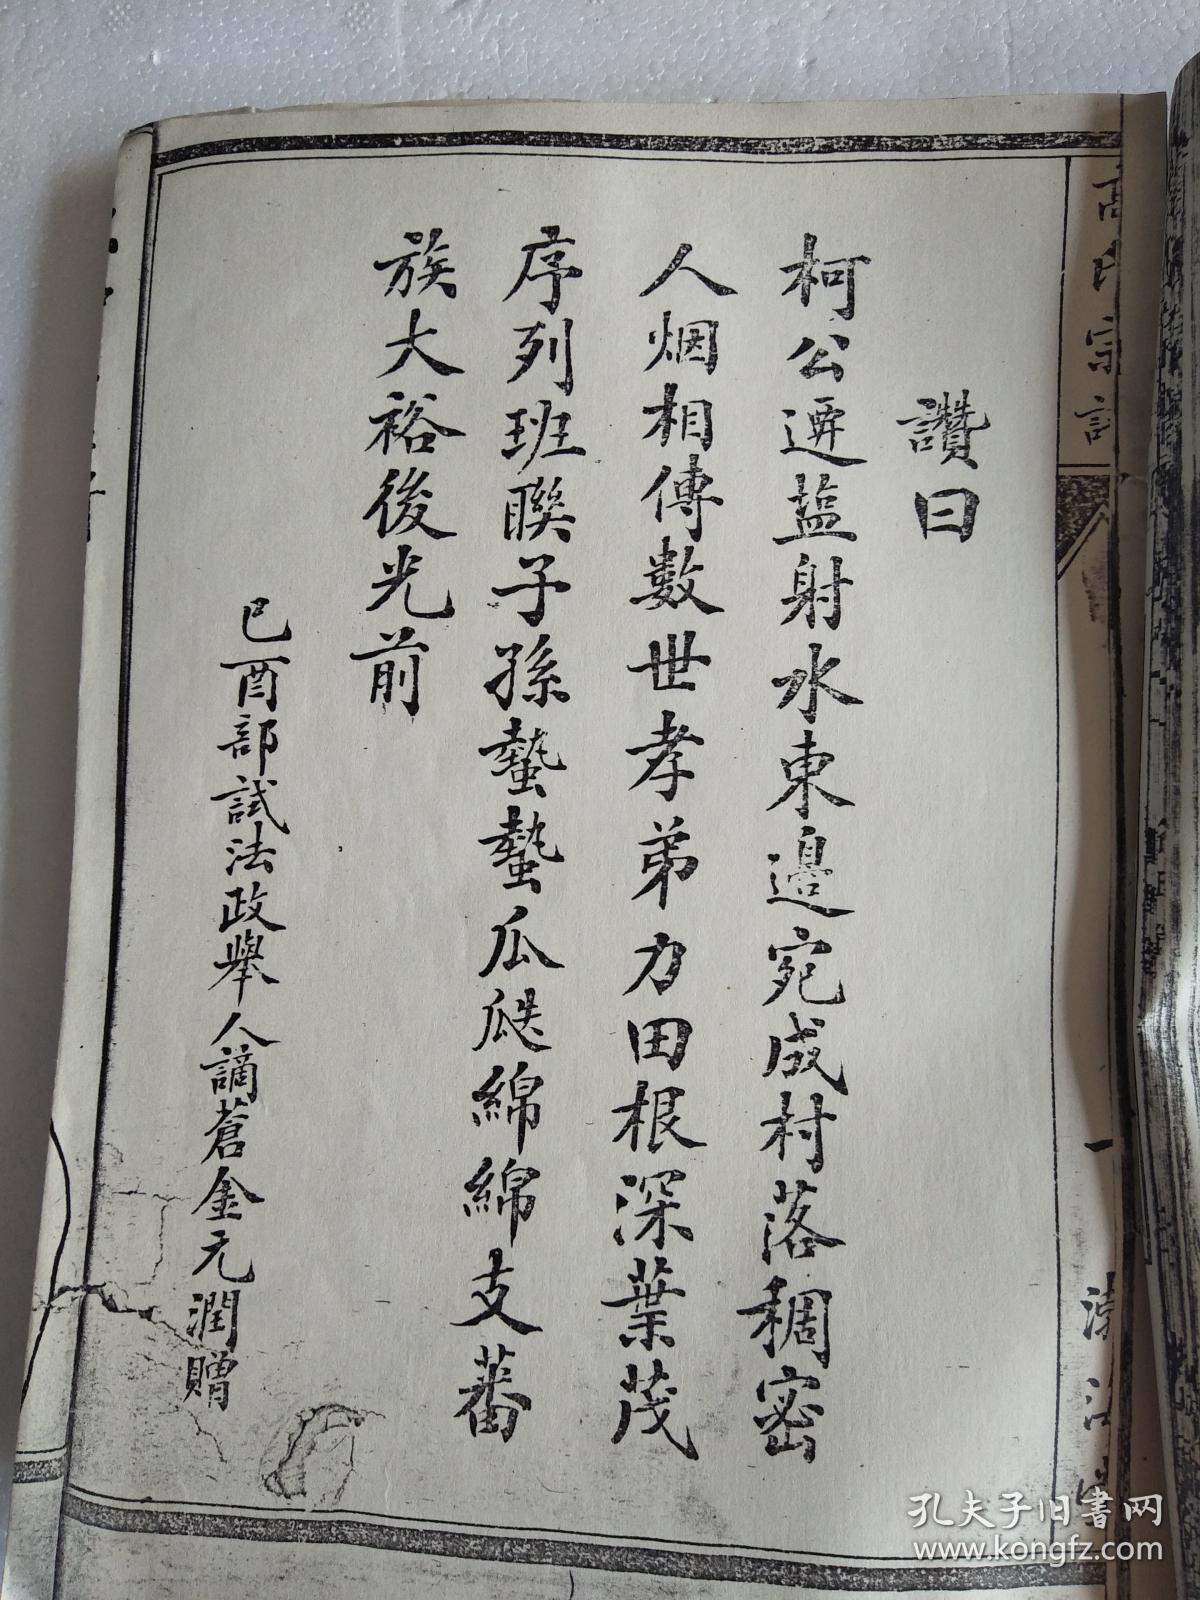 讚曰
柯公遷盐射水東邉宛成村落稠密
人烟相傳數世孝弟力田根深葉茂
序列班聯子孫蟄蟄瓜瓞綿綿支蕃
族大裕後光前
己酉部試法政舉人謫蒼金元潤贈
高氏宗
一
孔夫子旧书网
www.kongfz.com